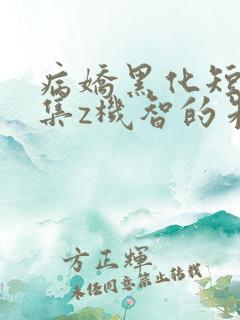 病嬌黑化短
集z機智的
方正輝
未經同意禁止轉載